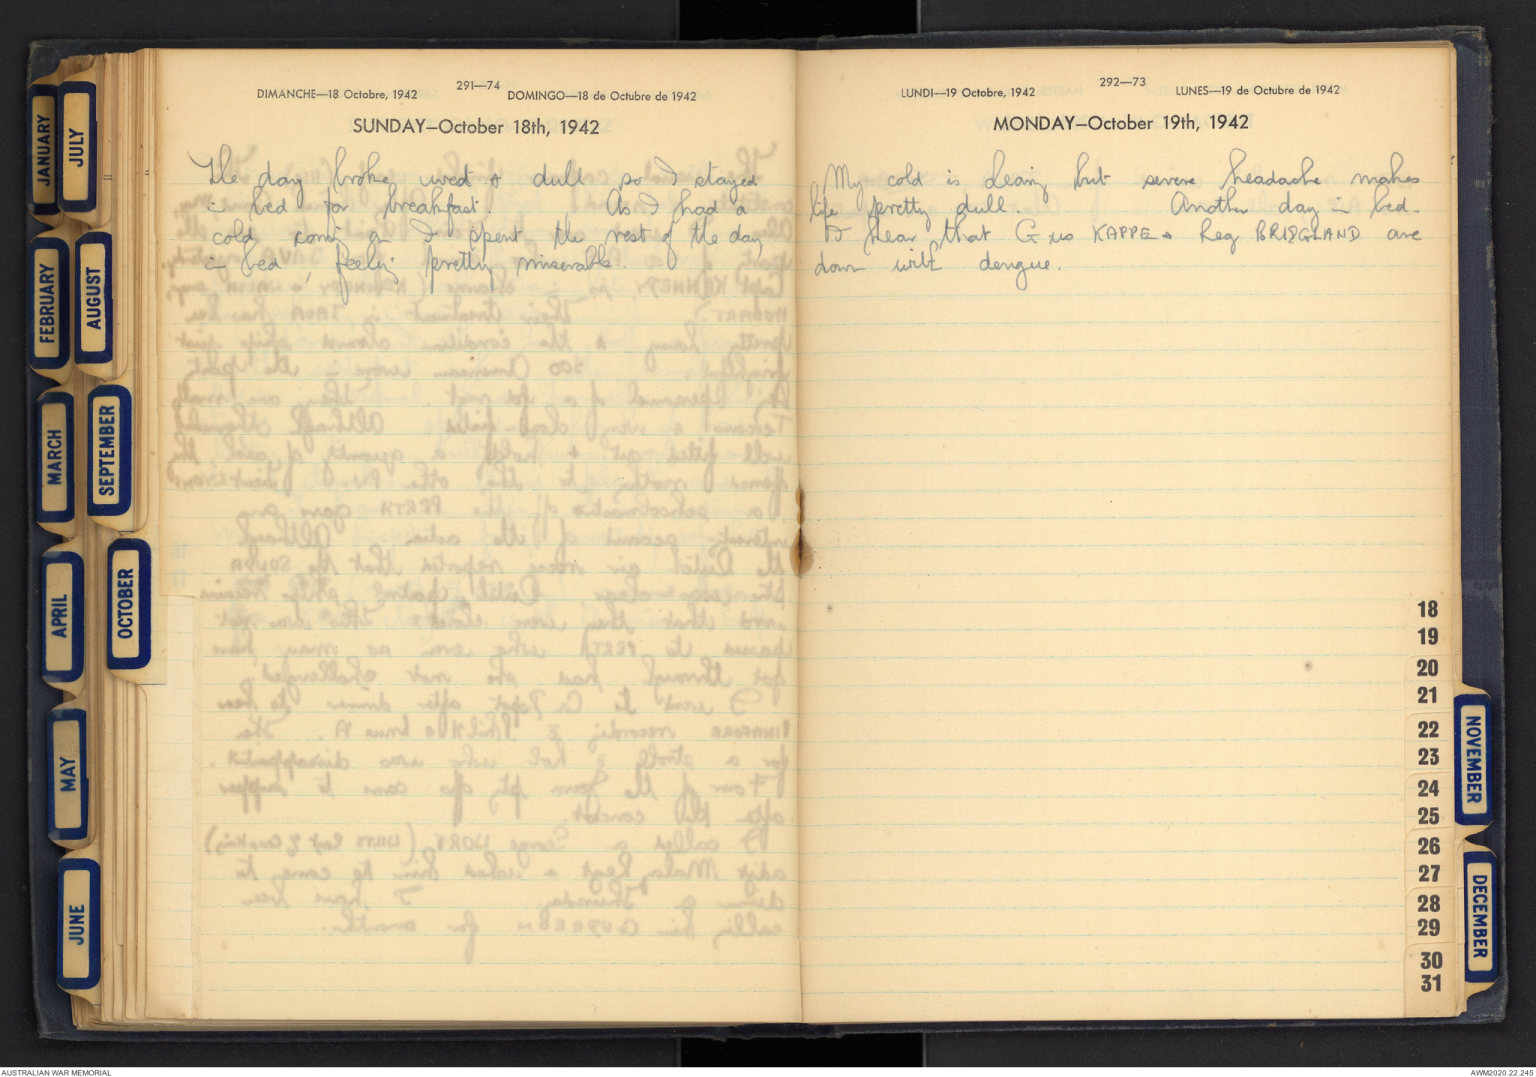 JANUARY
JULY
FEBRUARY
AUGUST
MARCH
SEPTEMBER
APRIL
OCTOBER
MAY
JUNE
DIMANCHE—18 Octobre, 1942
291—74
DOMINGO—18 de Octubre de 1942
SUNDAY—October 18th, 1942
The day broke, wet & dull so I stayed
in bed for breakfast. As I had a
cold coming on I spent the rest of the day
in bed, feeling pretty miserable.
LUNDI—19 Octobre, 1942
292—73
LUNES—19 de Octubre de 1942
MONDAY—October 19th, 1942
My cold is clearing but severe headache makes
life pretty dull. Another day in bed.
I hear that Gus KAPPE & Reg BRIDGLAND are
down with dengue.
18
19
20
21
22
23
24
25
26
27
28
29
30
31
NOVEMBER
DECEMBER
AUSTRALIAN WAR MEMORIAL
AWM2020.22.245